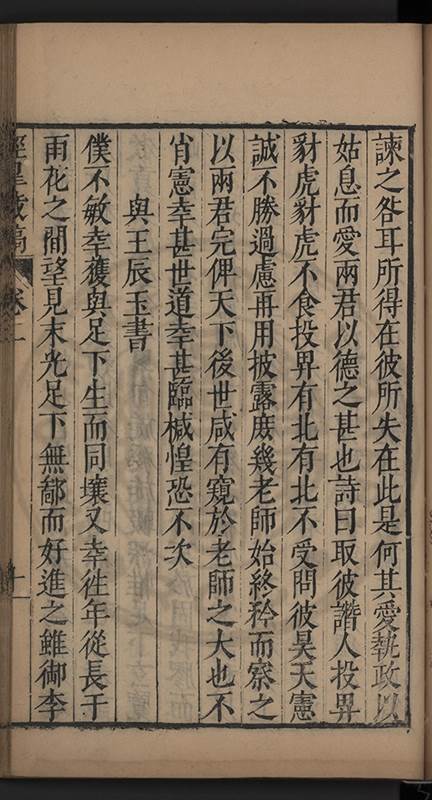 諫之咎耳所得在彼所失在此是何其愛執政以
姑息而愛兩君以德之甚也詩曰取彼譖人投畀
豺虎豺虎不食投畀有北有北不受問彼昊天憲
誠不勝過慮再用披露庶幾老師始終矜而察之
以兩君完俾天下後世咸有窺於老師之大也不
肖憲幸甚世道幸甚臨椷惶恐不次
與王辰玉書
僕不敏幸獲與足下生而同壤又幸徃年從長干
雨花之間望見末光足下無鄙而好進之雖御李
涇皐藏稿 卷二 十一